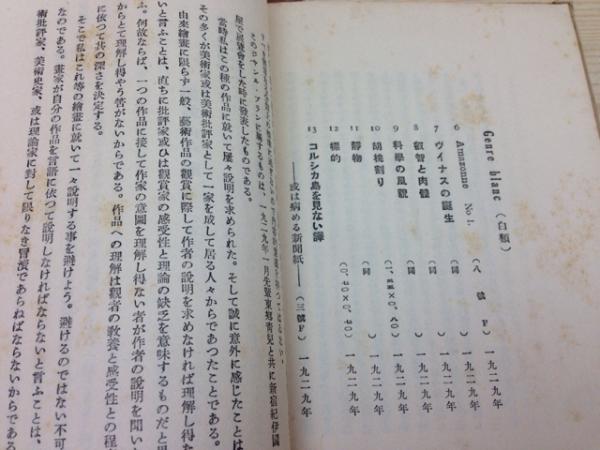 Genre blanc（白類）
6 Amazonne No 1.（八號F）一九二九年
7 ヴイナスの誕生（同）一九二九年
8 叡智と肉體（同）一九二九年
9 科學の風貌 一九二九年
10 胡桃割り（同）一九二九年
11 靜物 一九二九年
12 標的 一九二九年
13 コルシカ島を見ない譯
──或は病める新聞紙──（三號F）一九二九年
に屬するものは、一九二九年一月先輩東郷靑兒と共に新宿紀伊國
屋で展覽會をした時に發表したものである。
當時私はこの種の作品に就いて屢々說明を求められた。そして誠に意外に感じたことは
その多くが美術家或は美術批評家として一家を成して居る人々からであつたことである。
由來繪畫に限らず一般、藝術作品の觀賞に際して作者の說明を求めなければ理解し得な
いと言ふことは、直ちに批評家或ひは觀賞家の感受性と理論の缺乏を意味するものだと思
ふ。何故ならば、一つの作品に接して作家の意圖を理解し得ない者が作者の說明を聞いた
からとて理解し得やう筈がないからである。作品への理解は觀者の敎養と感受性との程
に依つて其の深さを決定する。
そこで私はこれ等の繪畫に就いて一々說明する事を避けよう。避けるのではない不可
なのである。畫家が自分の作品を言語に依つて說明しなければならないと言ふことは、
術批評家、美術史家、或は理論家に對して限りなき冒瀆であらねばならないからである